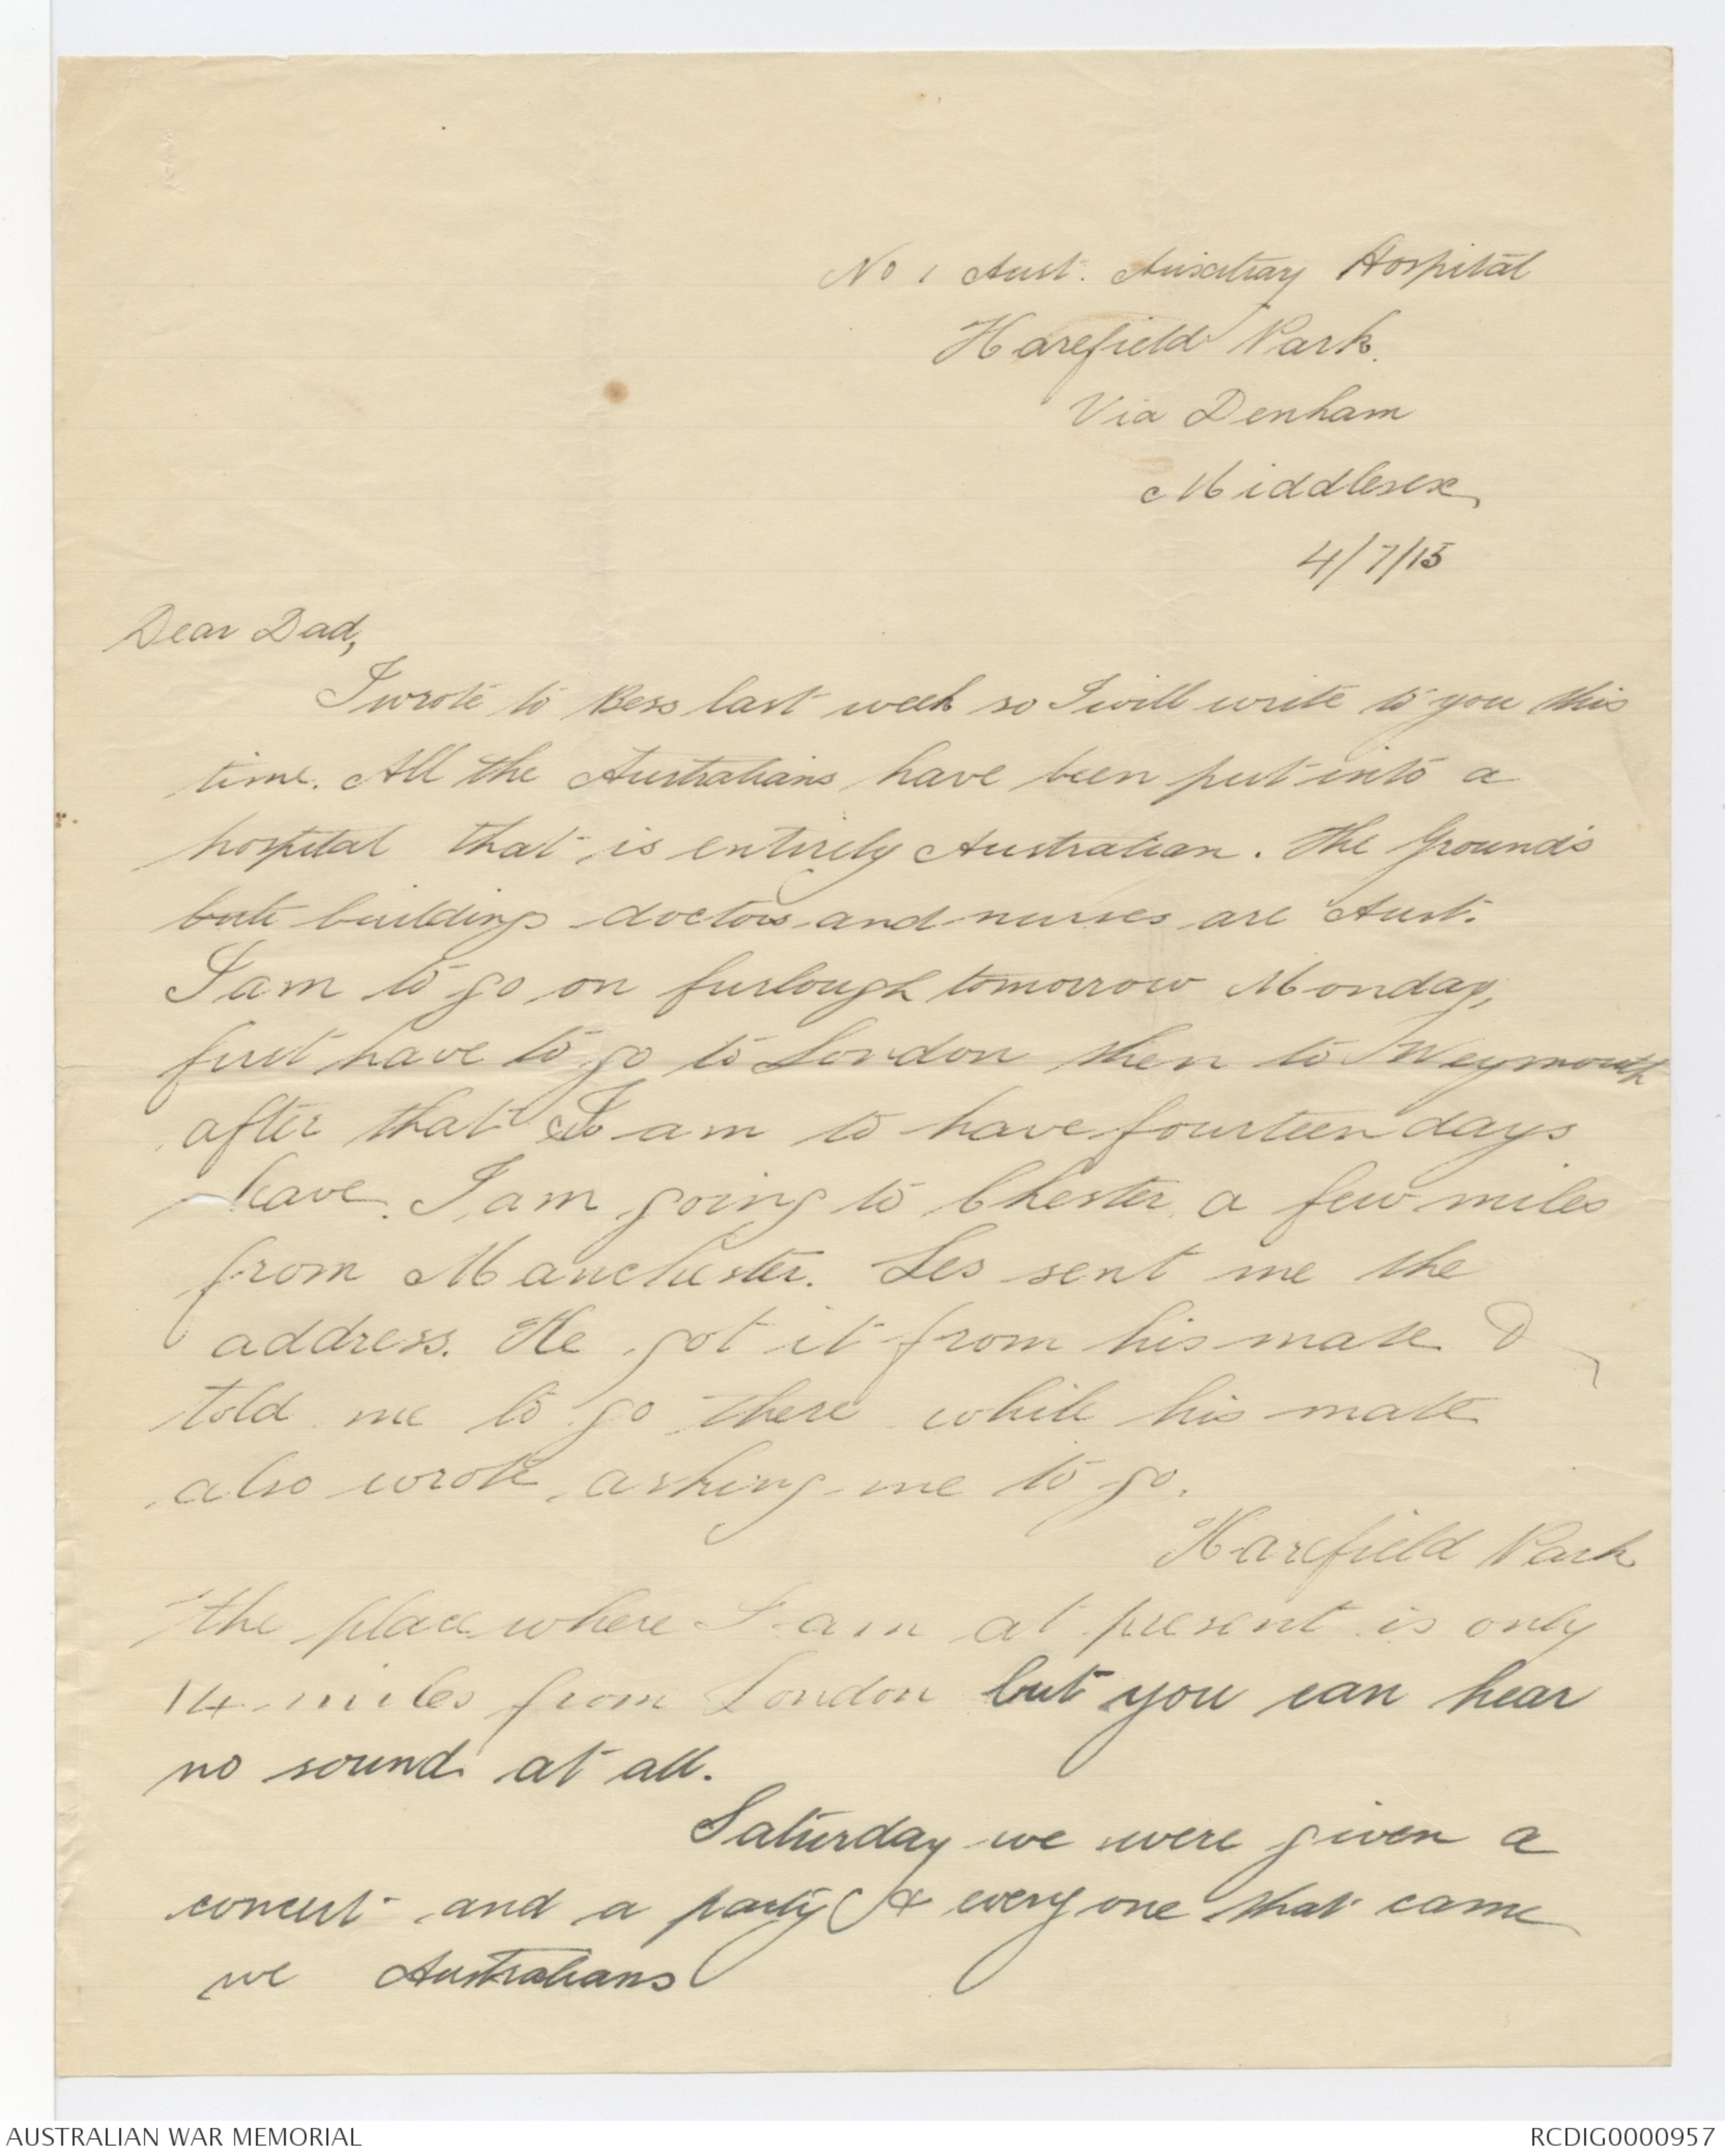 No 1 Aust. Auxiltiary Hospital
Harefield Park.
Via Denham
Middlesex
4/7/15
Dear Dad,
I wrote to Bess last week so I will write to you this
time. All the Australians have been put into a
hospital that is entirely Australian. The grounds
buildings doctors and nurses are Aust.
I am to go on furlough tomorrow Monday,
first have to go to London then to Weymouth
after that I am to have fourteen days
leave. I am going to Chester a few miles
from Manchester. Les sent me the
address. He got it from his mate &
told me to go there while his mate
also wrote asking me to go.
Harefield Park
the place where I am at present is only
14 miles from London but you can hear
no sound at all.
Saturday we were given a
concert and a party & every one that came
we Australians
AUSTRALIAN WAR MEMORIAL
RCDIG0000957